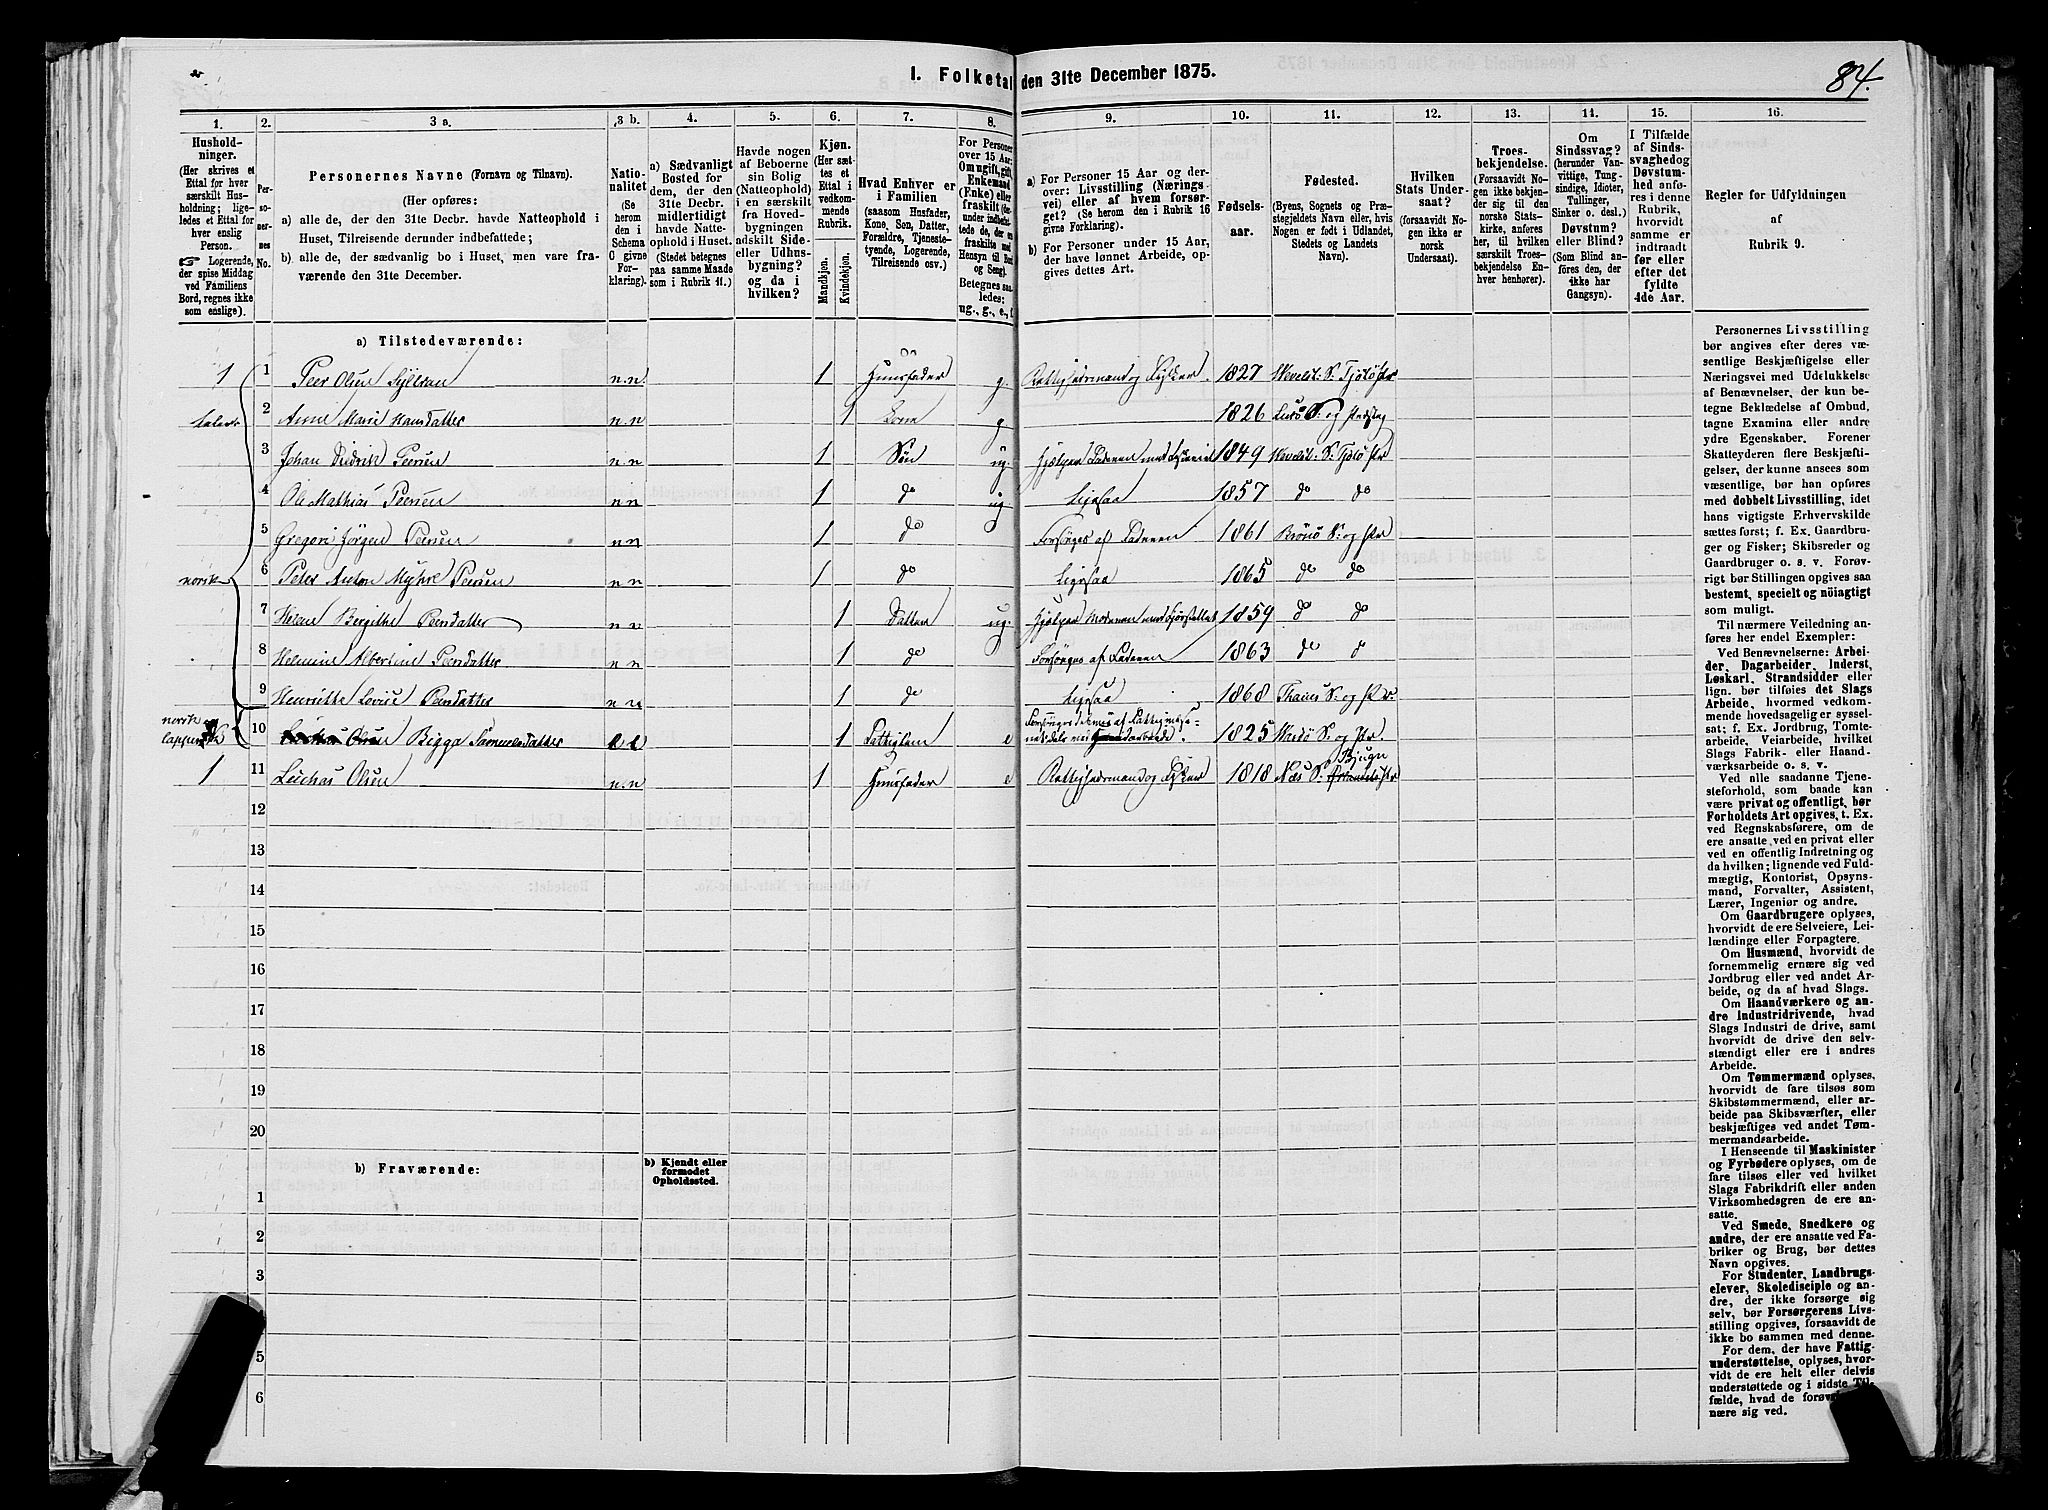 I. Folketal den 31te December 1875.
84.
1. 2. 3 a. 3 b. 4. 5. 6. 7. 8. 9. 10. 11. 12. 13. 14. 15. 16.
Hushold-
ninger.
(Her skrives et
Ettal for hver
særskilt Hus-
holdning; lige-
ledes et Ettal for
hver enslig
Person.
☞ Logerende,
der spise Middag
ved Familiens
Bord, regnes ikke
som enslige).
Per-
so-
ner-
nes
No.
Personernes Navne (Fornavn og Tilnavn).
(Her opføres:
a) alle de, der den 31te Decbr. havde Natteophold i
Huset, Tilreisende derunder indbefattede;
b) alle de, der sædvanlig bo i Huset, men vare fra-
værende den 31te December.
Natio-
nalitet
(Se
herom
den i
Schema
O givne
For-
klaring).
a) Sædvanligt
Bosted for
dem, der den
31te Decbr.
midlertidigt
havde Natte-
ophold i Huset.
(Stedet betegnes
paa samme Maade
som i Rubrik 11.)
Havde nogen
af Beboerne
sin Bolig
(Natteophold)
i en særskilt
fra Hoved-
bygningen
adskilt Side-
eller Udhus-
bygning?
og da i
hvilken?
Kjøn.
(Her sæt-
tes et
Ettal i
vedkom-
mende
Rubrik.
Mandkjøn.
Kvindekjøn.
Hvad Enhver er
i Familien
(saasom Husfader,
Kone, Søn, Datter,
Forældre, Tjeneste-
tyende, Logerende,
Tilreisende osv.)
For Personer
over 15 Aar:
Om ugift, gift,
Enkemand
(Enke) eller
fraskilt
Betegnes saa-
ledes:
ug., g., e., f.
a) For Personer 15 Aar og der-
over: Livsstilling (Nærings-
vei) eller af hvem forsør-
get? (Se herom den i Rubrik 16
givne Forklaring).
b) For Personer under 15 Aar,
der have lønnet Arbeide, op-
gives dettes Art.
Fødsels-
aar.
Fødested.
(Byens, Sognets og Præ-
stegjeldets Navn eller, hvis
Nogen er født i Udlandet,
Stedets og Landets
Navn).
Hvilken
Stats Under-
saat?
(forsaavidt No-
gen ikke er
norsk
Undersaat).
Troes-
bekjendelse.
(Forsaavidt No-
gen ikke bekjen-
der sig til den
norske Stats-
kirke, anføres
her, til hvilken
særskilt Troes-
bekjendelse En-
hver henhører).
Om
Sindssvag?
(herunder Van-
vittige, Tung-
sindige, Idioter,
Tullinger,
Sinker o. desl.)
Døvstum?
eller Blind?
(Som Blind an-
føres den, der
ikke har
Gangsyn).
I Tilfælde
af Sinds-
svaghed og
Døvstum-
hed anfø-
res i denne
Rubrik,
hvorvidt
samme er
indtraadt
før eller
efter det
fyldte
4de Aar.
Regler for Udfyldningen
af
Rubrik 9.
a) Tilstedeværende:
1 1 Peer Olsen n.n. 1 Huusfader g. 1827
2 Anne Marie Hansdatter n.n 1 Kone g 1826
3 Johan Didrik Peersen n.n 1 Søn ug. 1849
4 Ole Mathias Peersen n n 1 do ug. Ligesaa 1857 do do
5 Gregori Jørgen Peersen n n 1 do Forsørges af Faderen 1861 Brönö S. og Pr
norsk 6 Peter Anton Myhre Peersen n n 1 do Ligesaa 1865 do do
7 Helene Bergithe Peersdatter n n 1 Datter ug. 1859 do do
8 Helmine Albertine Peersdatter n n 1 do Forsørges af Faderen 1863 do d
9 Henriette Lovise Peersdatter n n 1 do Ligesaa 1868 S. og Pr.
norsk og
10 Bigga Samuelsdatter l l 1 Fattiglem e 1825 S. og Pr.
1 11 Luchas Olsen n.n 1 Huusfader e 1818 Næs S. Bjugn Pr
12
13
14
15
16
17
18
19
20
b) Fraværende:
b) Kjendt eller
formodet
Opholdssted.
1
2
3
5
6
Personernes Livsstilling
bør angives efter deres væ-
sentlige Beskjæftigelse eller
Næringsvei med Udelukkelse
af Benævnelser, der kun be-
tegne Beklædelse af Ombud,
tagne Examina eller andre
ydre Egenskaber. Forener
Skatteyderen flere Beskjæfti-
gelser, der kunne ansees som
væsentlige, bør han opføres
med dobbelt Livsstilling, idet
hans vigtigste Erhvervskilde
sættes først; f. Ex. Gaardbru-
ger og Fisker; Skibsreder og
Gaardbruger o. s. v. Forøv-
rigt bør Stillingen opgives saa
bestemt, specielt og nöiagtigt
som muligt.
Til nærmere Veiledning an-
føres her endel Exempler:
Ved Benævnelserne: Arbei-
der, Dagarbeider, Inderst,
Løskarl, Strandsidder eller
lign. bør tilføies det Slags
Arbeide, hvormed vedkom-
mende hovedsagelig er syssel-
sat; f. Ex. Jordbrug, Tomte-
arbeide, Veiarbeide, hvilket
Slags Fabrik- eller Haand-
værksarbeide o. s. v.
Ved alle saadanne Tjene-
steforhold, som baade kan
være privat og offentligt, bør
Forholdets Art opgives, t. Ex.
ved Regnskabsførere, om de
ere ansatte ved en privat eller
ved en offentlig Indretning og
da hvilken; lignende ved Fuld-
mægtig, Kontorist, Opsyns-
mand, Forvalter, Assistent,
Lærer, Ingeniør og andre.
Om Gaardbrugere oplyses,
hvorvidt de ere Selveiere, Lei-
lændinge eller Forpagtere.
Om Husmænd, hvorvidt de
fornemmelig ernære sig ved
Jordbrug eller ved andet Ar-
beide, og da af hvad Slags.
Om Haandværkere og an-
dre Industridrivende, hvad
Slags Industri de drive, samt
hvorvidt de drive den selv-
stændigt eller ere i andres
Arbeide.
Om Tømmermænd oplyses,
hvorvidt de fare tilsøs som
Skibstømmermænd, eller ar-
beide paa Skibsværfter, eller
beskjæftiges ved andet Tøm-
mermandsarbeide.
I Henseende til Maskinister
og Fyrbødere oplyses, om de
fare tilsøs eller ved hvilket
Slags Fabrikdrift eller anden
Virksomhedsgren de ere an-
satte.
Ved Smede, Snedkere og
andre, der ere ansatte ved Fa-
briker og Brug, bør dettes
Navn opgives.
For Studenter, Landbrugs-
elever, Skoledisciple og an-
dre, der ikke forsørge sig
selv, bør Forsørgerens Livs-
stilling opgives, forsaavidt de
ikke bo sammen med denne.
For dem, der have Fattig-
understøttelse, oplyses, hvor-
vidt de ere helt eller delvis
understøttede og i sidste Til-
fælde, hvad de forøvrigt er-
nære sig ved.